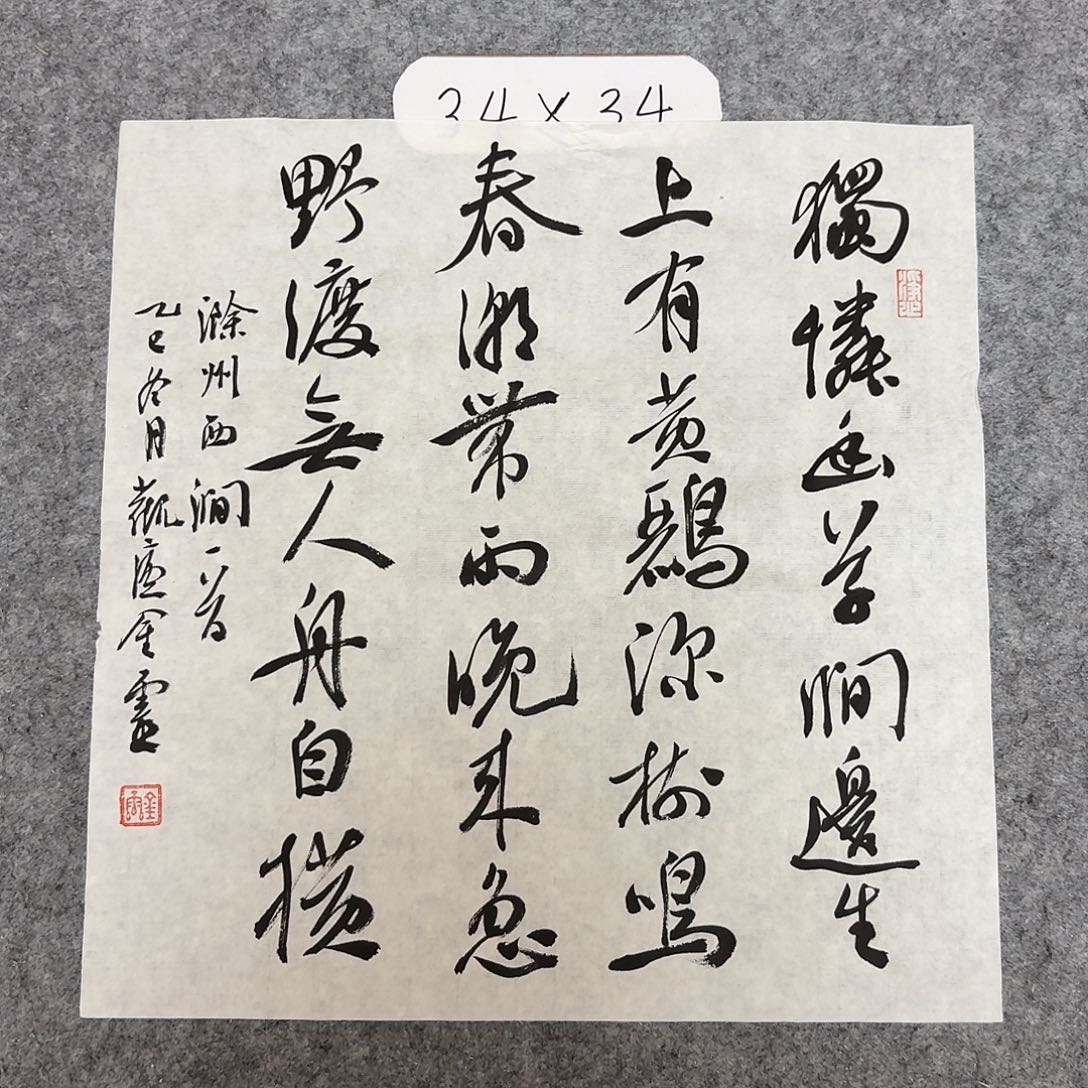 34×34
獨憐幽草澗邊生
上有黄鸝深樹鳴
春潮带雨晚来急
野渡無人舟自横
滁州西澗一首
乙巳冬月觀廬金靈